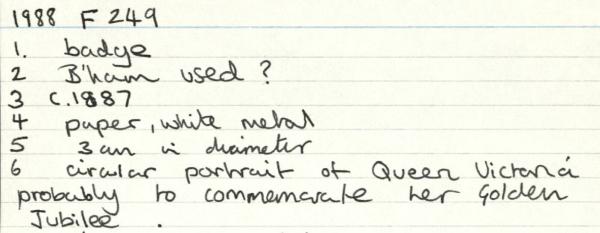 1988 F 249
1. badge
2 B'ham used ?
3 c.1887
4 paper, white metal
5 3cm in diameter
6 circular portrait of Queen Victoria
probably to commemorate her Golden
Jubilee .